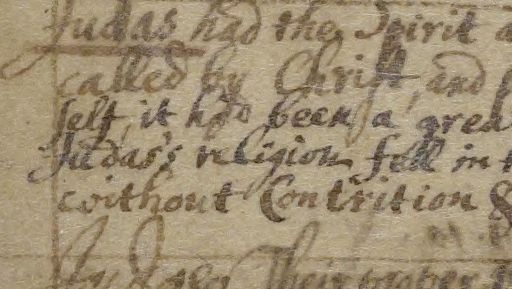 Judas had the Spirit
called by Christ, and
self, it had been a grea
Judas's religion fell in
without Contrition &
Judas Their